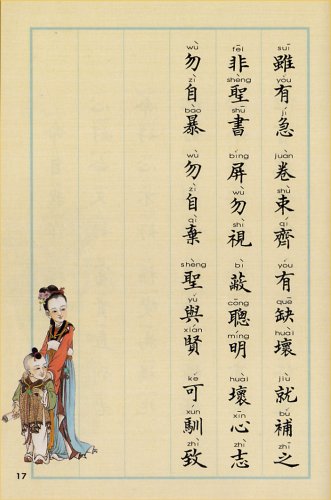 suī yǒu jí juàn shù qí yǒu quē huài jiù bǔ zhī
雖有急 卷束齊 有缺壞 就補之
fēi shèng shū bǐng wù shì bì cōng míng huài xīn zhì
非聖書 屏勿視 蔽聰明 壞心志
wù zì bào wù zì qì shèng yǔ xián kě xùn zhì
勿自暴 勿自棄 聖與賢 可馴致
17